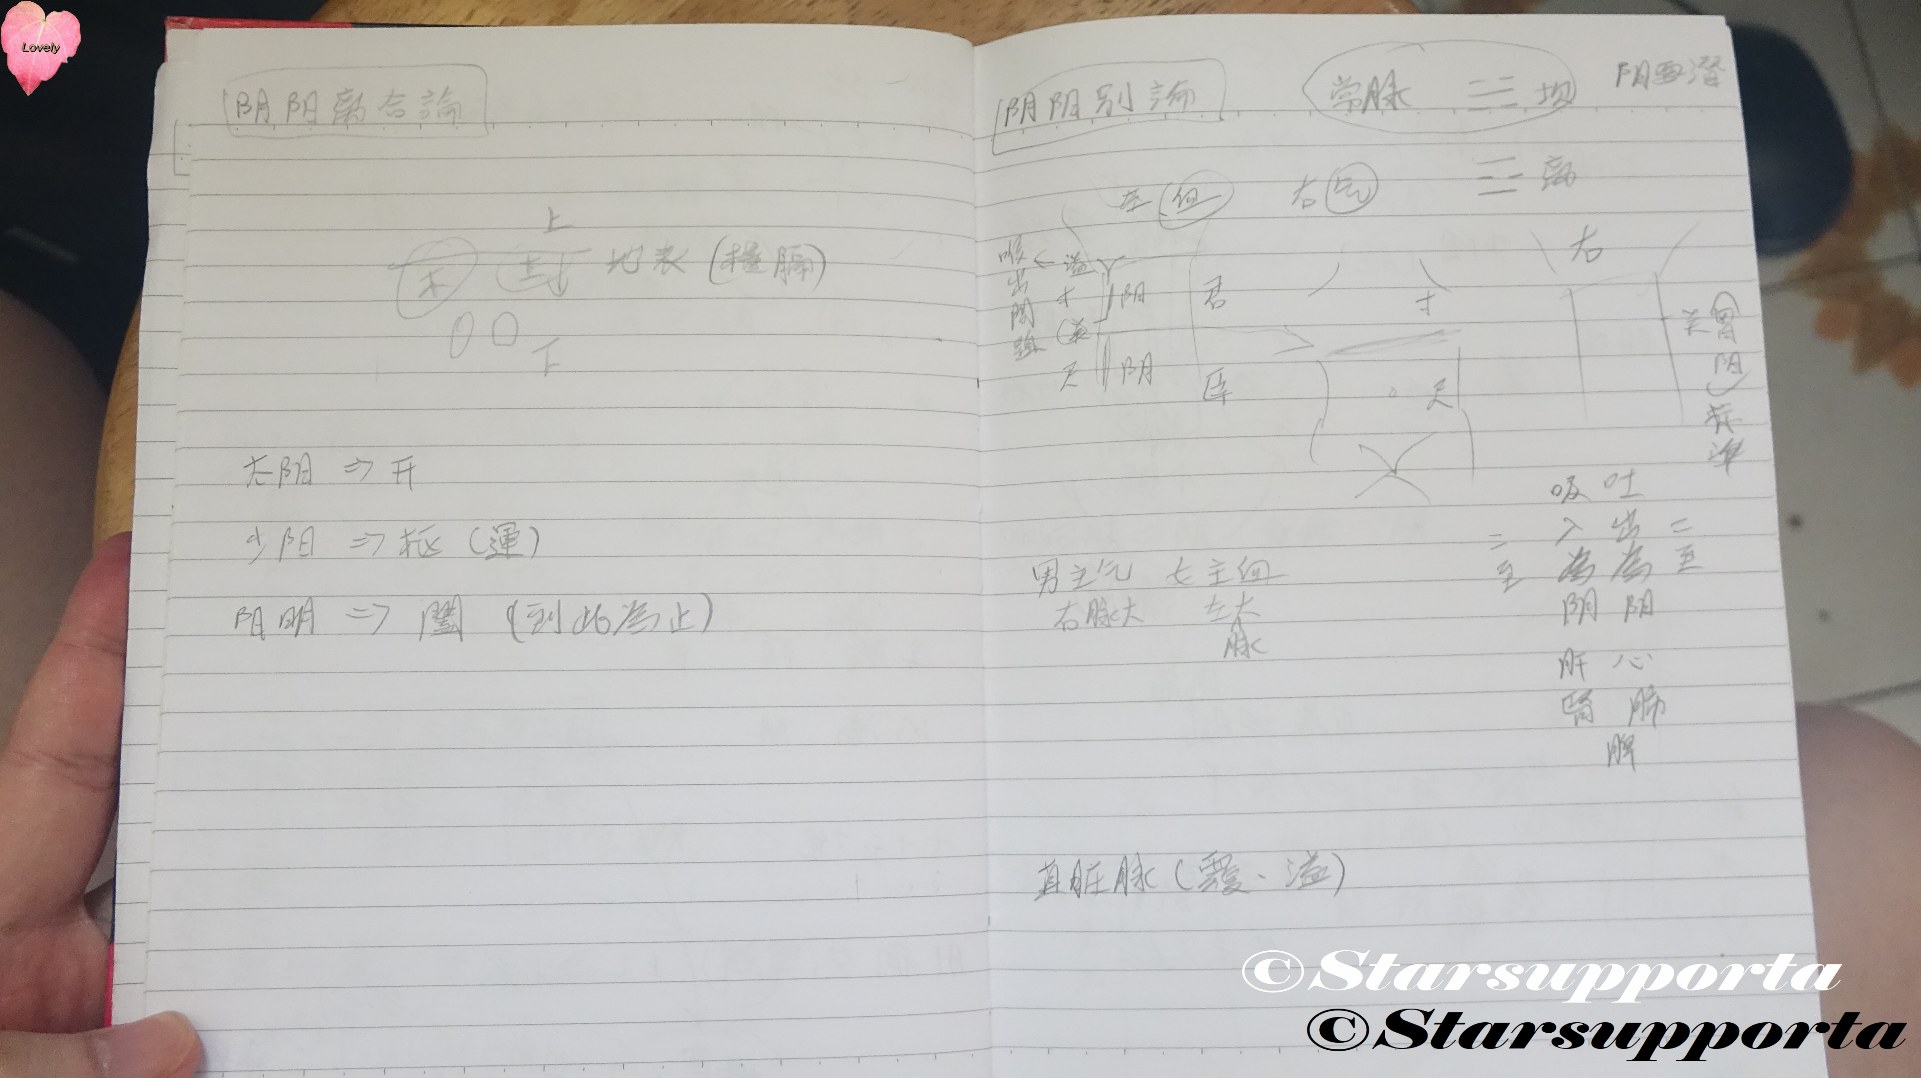 Lovely
阴阳離合論
上
地表(橫膈)
下
太阳 ⇒ 开
少阳 ⇒ 枢 (運)
阳明 ⇒ 闔 (到此為止)
阴阳别論
常脉 ☵ 坎
阳要潛
左 血 右 气
☲ 離
右
喉
出
問
題
溢
寸
关
尺
阳
阴
君
臣
寸
尺
关
胃
阴
标
準
吸 吐
二 入 出 二
至 為 為 至
阴 阳
肝 心
腎 肺
脾
男主气 女主血
右脉大 左大
脉
真脏脉 (覆、溢)
©Starsupporta
©Starsupporta